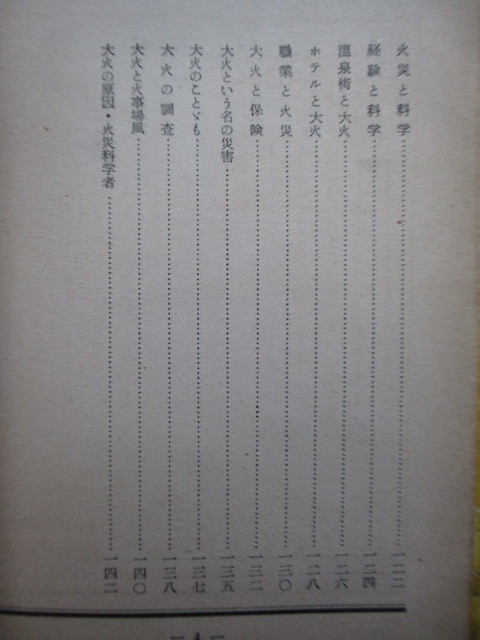 火災と科学……一二二
経験と科学……一二四
温泉街と大火……一二六
ホテルと大火……一二八
職業と火災……一三〇
大火と保険……一三二
大火という名の災害……一三五
大火のことゞも……一三七
大火の調査……一三八
大火と火事場風……一四〇
大火の原因・火災科学者……一四二
— 4 —